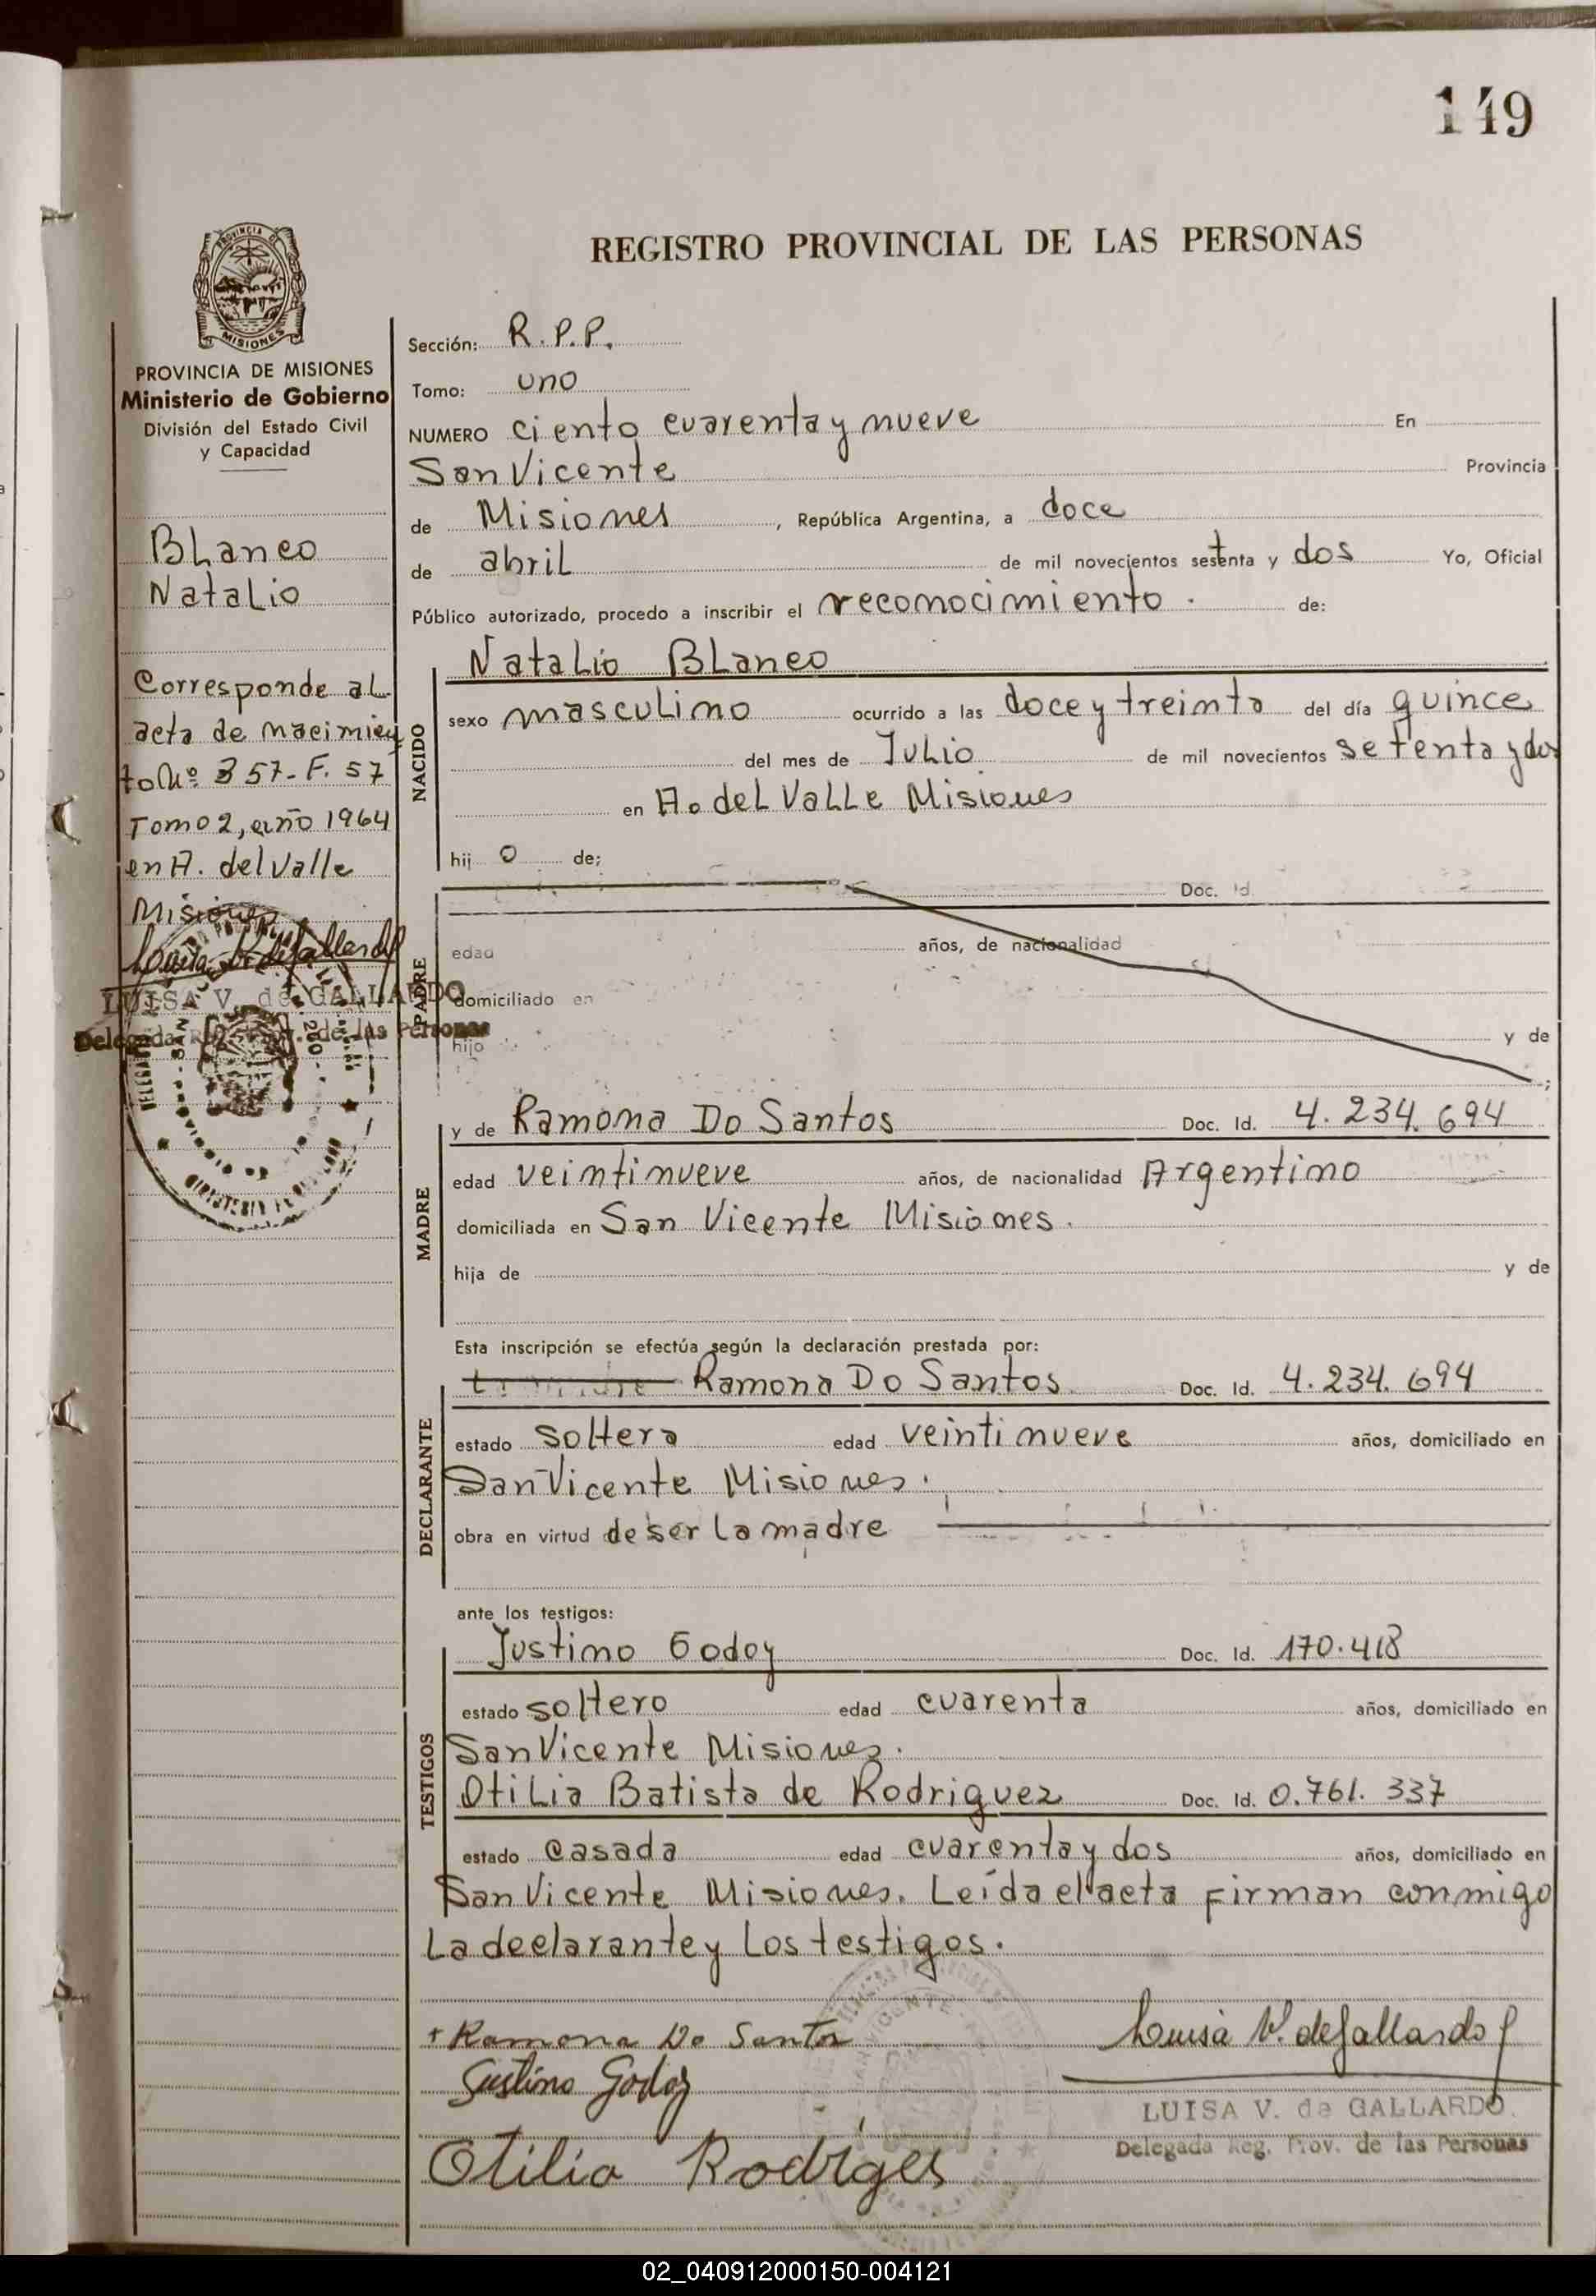 149
REGISTRO PROVINCIAL DE LAS PERSONAS
PROVINCIA DE
MISIONES
PROVINCIA DE MISIONES
Ministerio de Gobierno
División del Estado Civil
y Capacidad
Blanco
Natalio
Corresponde al
acta de nacimien
to Nº 357-F. 57
Tomo 2, año 1964
en A. del Valle
Misiones
Luisa V. de Gallardo
LUISA V. de GALLARDO
Delegada Reg. Prov. de las Personas
Sección: R.P.P.
Tomo: uno
NUMERO ciento cuarenta y nueve En
San Vicente Provincia
de Misiones, República Argentina, a doce
de abril de mil novecientos setenta y dos Yo, Oficial
Público autorizado, procedo a inscribir el reconocimiento. de:
NACIDO
Natalio Blanco
sexo masculino ocurrido a las doce y treinta del día quince
del mes de Julio de mil novecientos setenta y dos
en A. del Valle Misiones
hij o de;
PADRE
Doc. Id.
edad años, de nacionalidad
domiciliado en
hijo y de
MADRE
y de Ramona Do Santos Doc. Id. 4.234.694
edad veintinueve años, de nacionalidad Argentino
domiciliada en San Vicente Misiones.
hija de y de
Esta inscripción se efectúa según la declaración prestada por:
DECLARANTE
Ramona Do Santos Doc. Id. 4.234.694
estado soltera edad veintinueve años, domiciliado en
San Vicente Misiones.
obra en virtud de ser la madre
ante los testigos:
TESTIGOS
Justino Godoy Doc. Id. 170.418
estado soltero edad cuarenta años, domiciliado en
San Vicente Misiones.
Otilia Batista de Rodriguez Doc. Id. 0.761.337
estado casada edad cuarenta y dos años, domiciliado en
San Vicente Misiones. Leída el acta firman conmigo
La declarante y los testigos.
+ Ramona Do Santos
Justino Godoy
Otilia Rodriges
Luisa V. de Gallardo
LUISA V. de GALLARDO
Delegada Reg. Prov. de las Personas
02_040912000150-004121